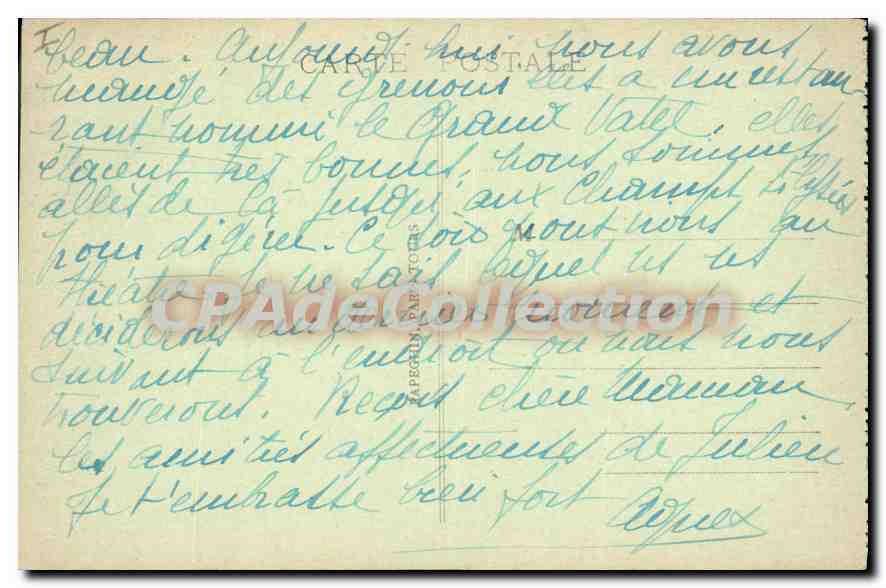 I
CARTE POSTALE
beau. Aujourd'hui nous avons
mangé des grenouilles a un restau-
rant nommé le Grand Vatel, elles
étaient très bonnes, nous sommes
allés de là jusqu'aux Champs Elysées
pour digérer. Ce soir nous au
M
théâtre je ne sais lequel ns ns
déciderons au dernier moment et
suivant à l'endroit où nous nous
trouverons. Reçois chère Maman
les amitiés affectueuses de Julien
Je t'embrasse bien fort
Agnex
PAPEGUIN, PAP. A TOURS
CPAdeCollection.com